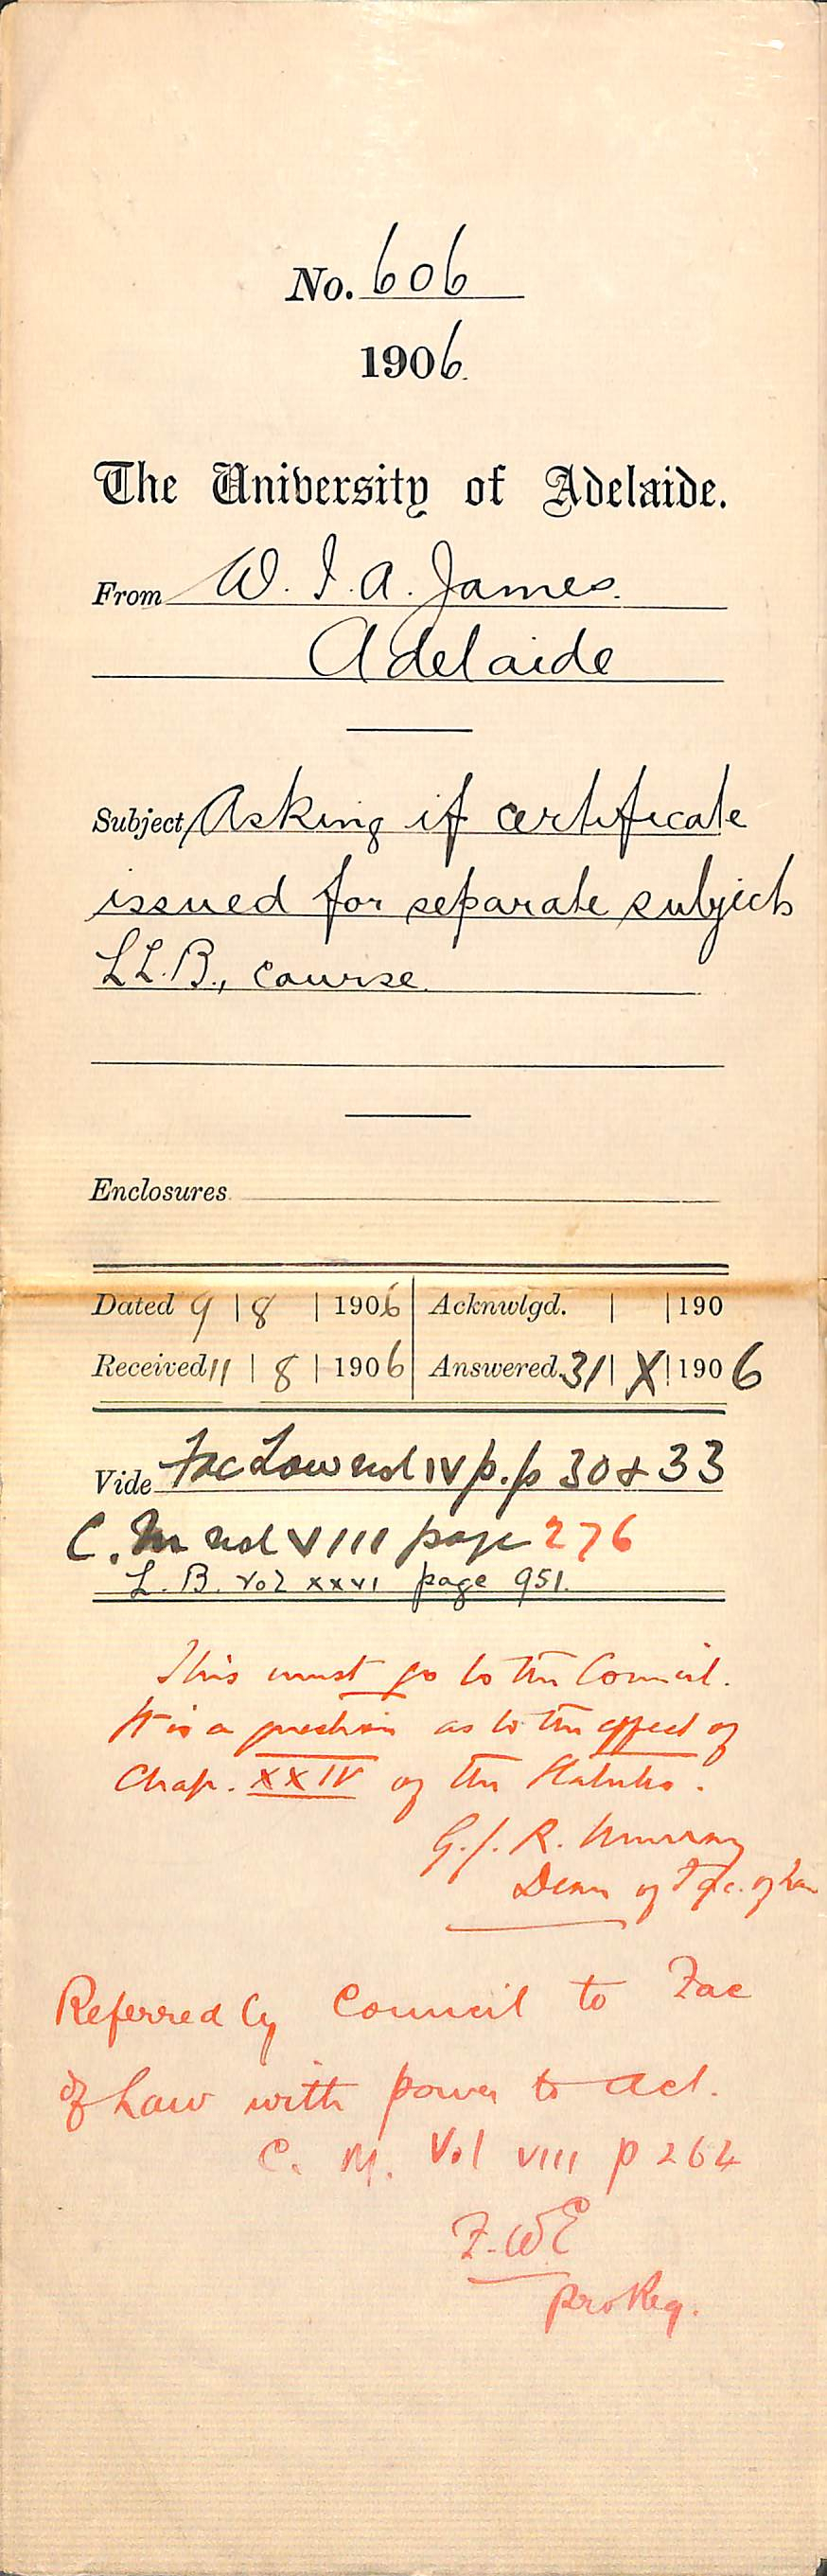 No. 606
1906.
The University of Adelaide.
From W. I. A. James.
Adelaide
Subject Asking if certificate
issued for separate subjects
LL.B., course.
Enclosures
Dated 9 | 8 | 1906 Acknwlgd. | | 190
Received 11 | 8 | 1906 Answered. 31 | X | 1906
Vide Fac Law vol IV p.p 30 & 33
C. M vol VIII page 276
L. B. vol xxvi page 951.
This must go to the Council.
It is a question as to the effect of
Chap. XXIV of the Statutes.
G. J. R. Murray
Dean of Fac. of Law
Referred by Council to Fac
of Law with power to act.
C. M. Vol VIII p 264
F. W E
pro Reg.